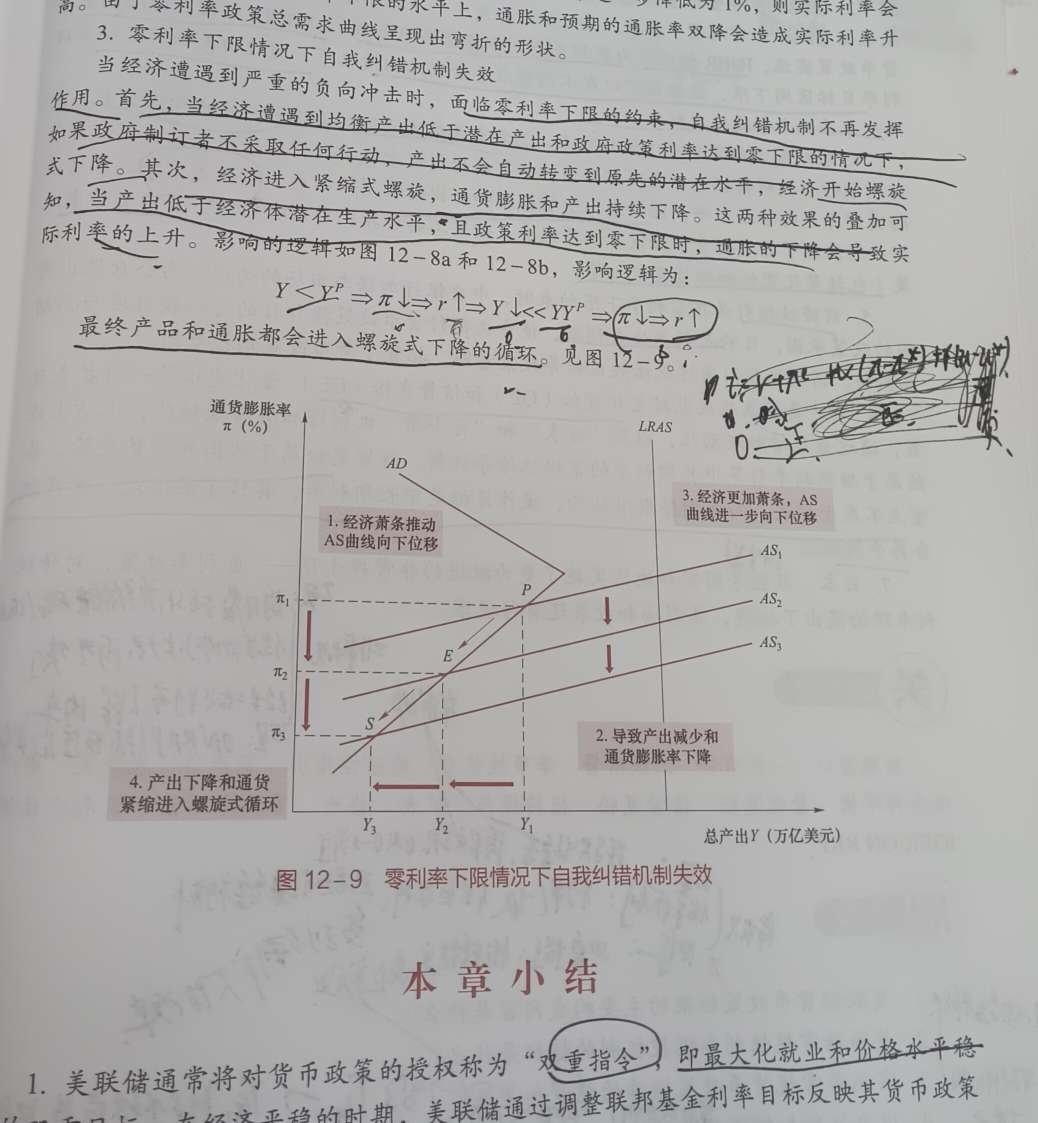 降低为1%，则实际利率会
高。由于零利率政策总需求曲线呈现出弯折的形状。
限的水平上，通胀和预期的通胀率双降会造成实际利率升
3. 零利率下限情况下自我纠错机制失效
当经济遭遇到严重的负向冲击时，面临零利率下限的约束，自我纠错机制不再发挥
作用。首先，当经济遭遇到均衡产出低于潜在产出和政府政策利率达到零下限的情况下，
如果政府制订者不采取任何行动，产出不会自动转变到原先的潜在水平，经济开始螺旋
式下降。其次，经济进入紧缩式螺旋，通货膨胀和产出持续下降。这两种效果的叠加可
知，当产出低于经济体潜在生产水平，且政策利率达到零下限时，通胀的下降会导致实
际利率的上升。影响的逻辑如图 12-8a 和 12-8b，影响逻辑为：
Y < Y^P ⇒ π ↓ ⇒ r ↑ ⇒ Y ↓ << YY^P ⇒ π ↓ ⇒ r ↑
最终产品和通胀都会进入螺旋式下降的循环。见图 12-9。
通货膨胀率
π（%）
LRAS
AD
1. 经济萧条推动
AS曲线向下位移
3. 经济更加萧条，AS
曲线进一步向下位移
AS₁
AS₂
AS₃
π₁
π₂
π₃
P
E
S
2. 导致产出减少和
通货膨胀率下降
4. 产出下降和通货
紧缩进入螺旋式循环
Y₃
Y₂
Y₁
总产出Y（万亿美元）
图 12-9 零利率下限情况下自我纠错机制失效
本章小结
1. 美联储通常将对货币政策的授权称为“双重指令”，即最大化就业和价格水平稳
在经济平稳的时期，美联储通过调整联邦基金利率目标反映其货币政策